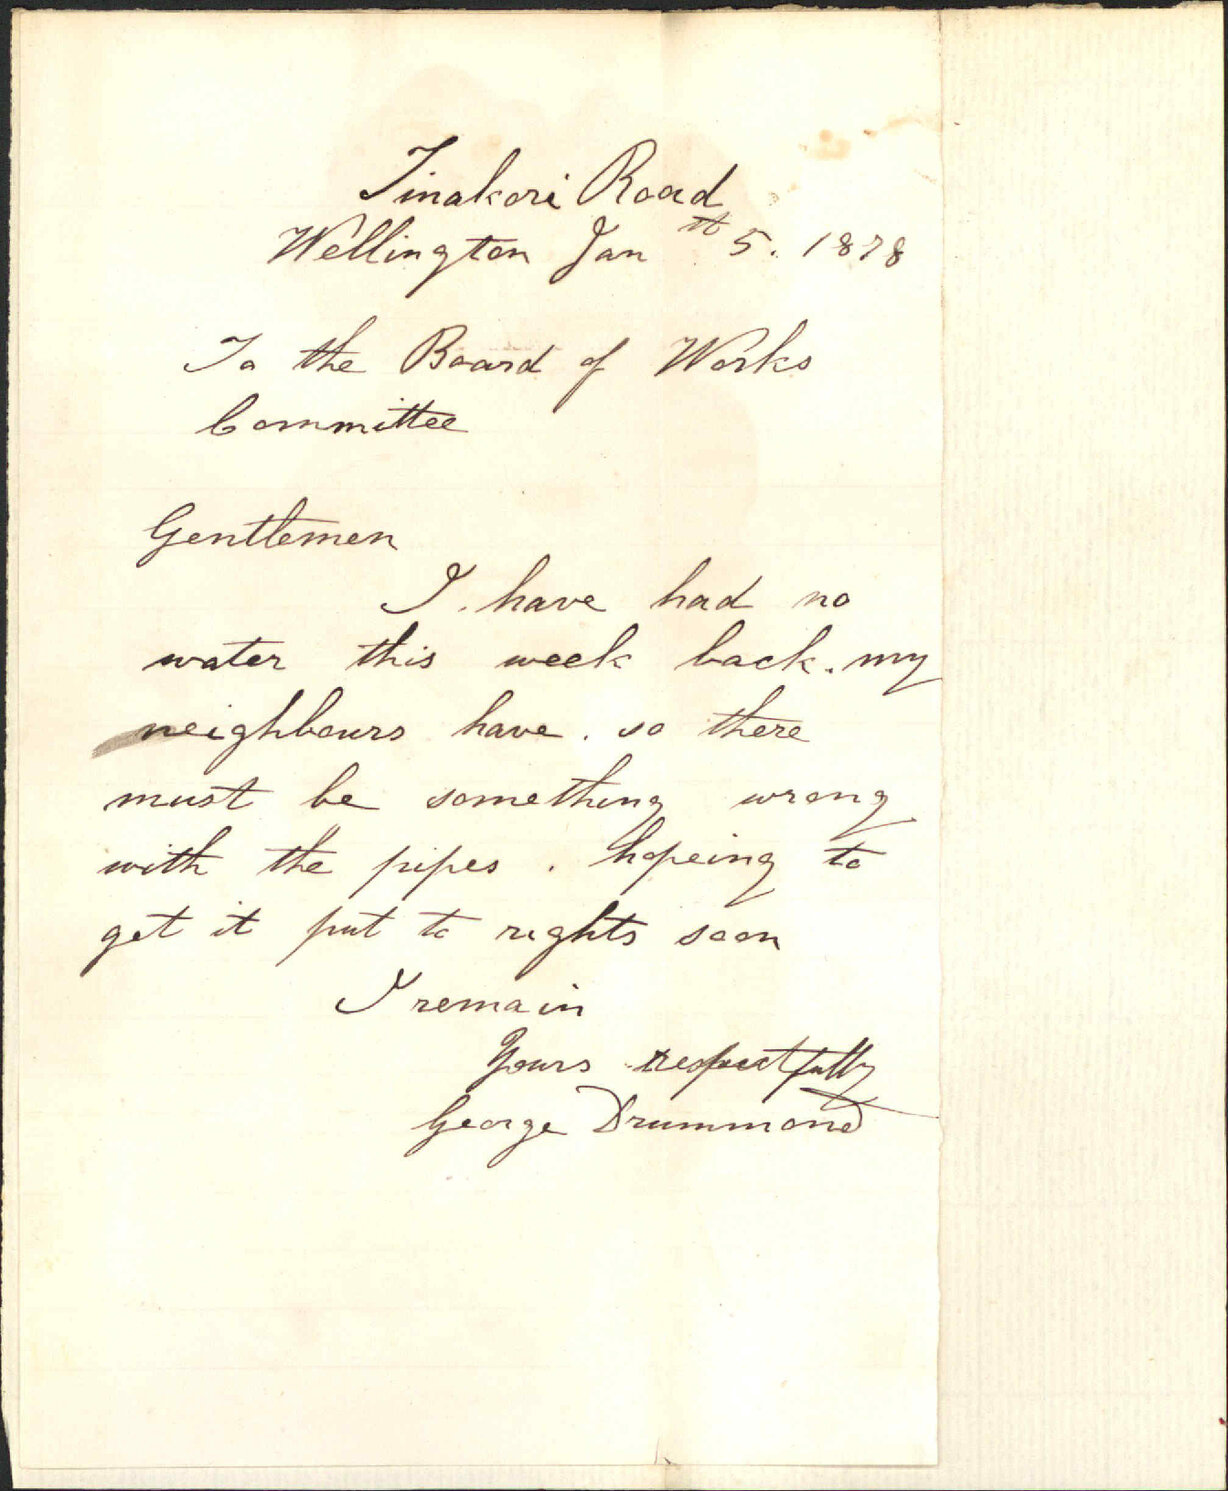 Tinakori Road
Wellington Jan th 5. 1878
To the Board of Works
Committee
Gentlemen
I. have had no
water this week back. my
neighbours have. so there
must be something wrong
with the pipes. hopeing to
get it put to rights soon
I remain
Yours respectfully
George Drummond